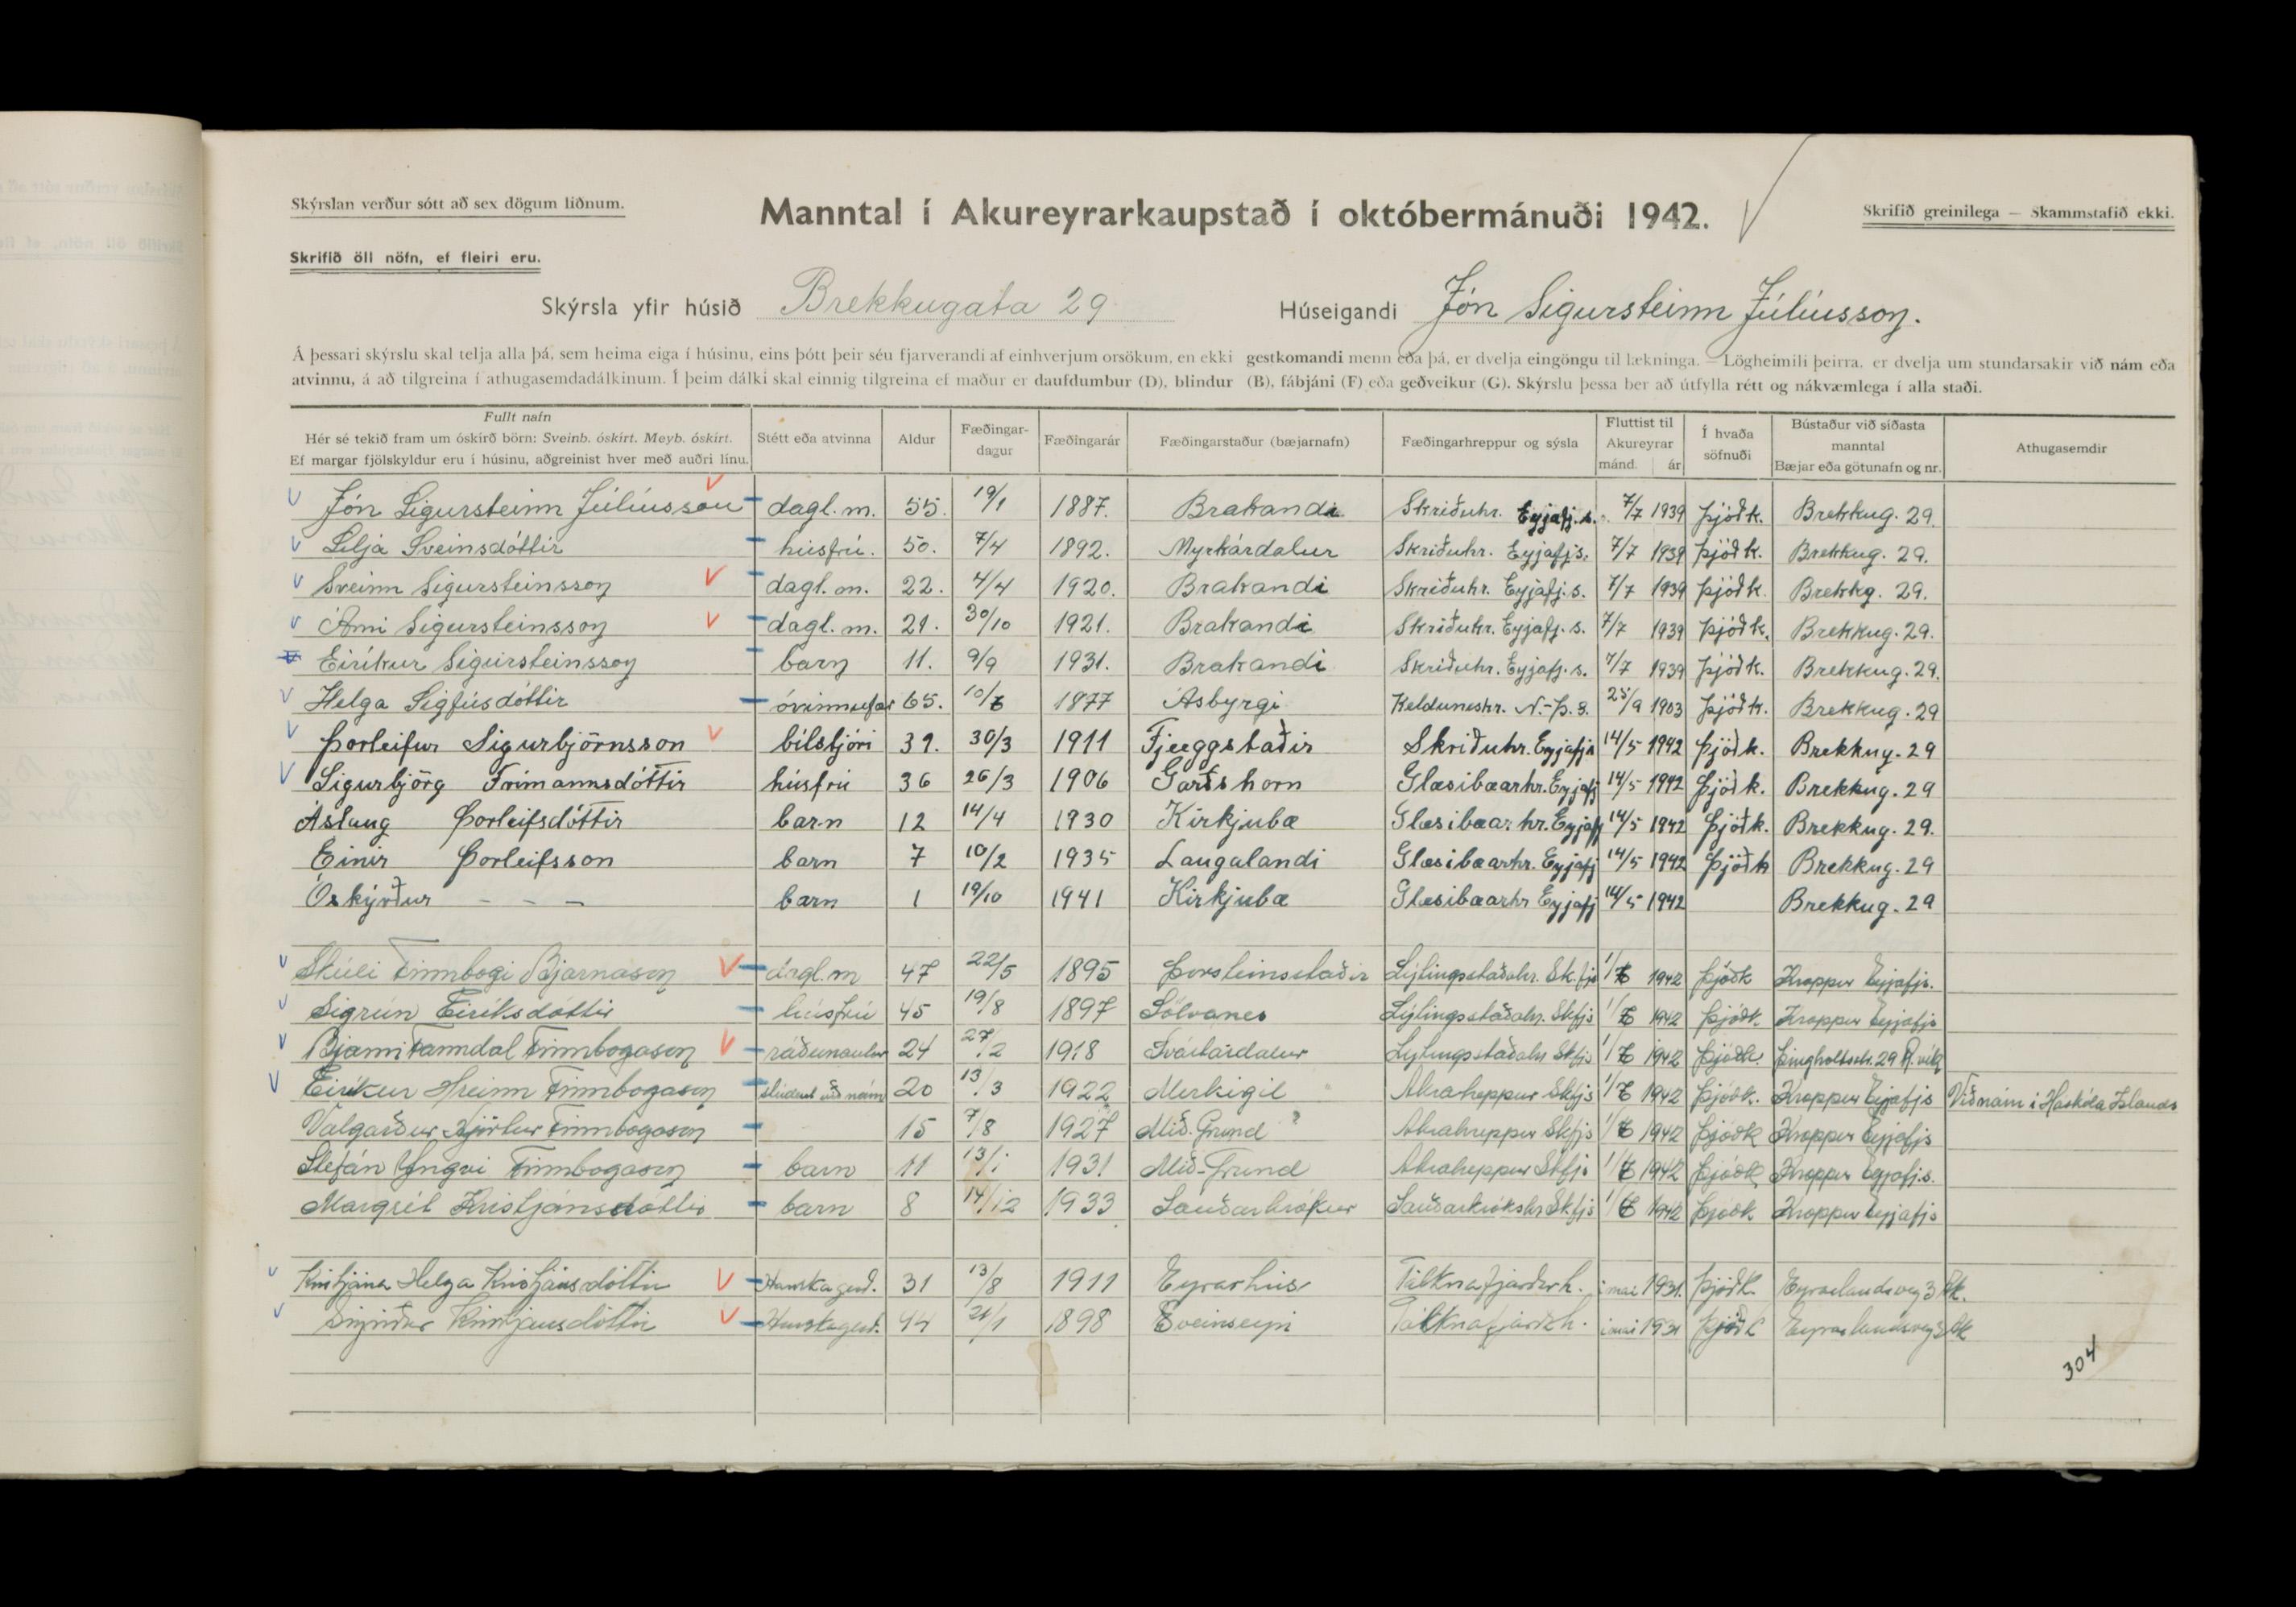 Skýrslan verður sótt að sex dögum liðnum.
Manntal í Akureyrarkaupstað í októbermánuði 1942.
Skrifið greinilega — Skammstafið ekki.
Skrifið öll nöfn, ef fleiri eru.
Skýrsla yfir húsið Brekkugata 29 Húseigandi Jón Sigursteinn Júlíusson.
Á þessari skýrslu skal telja alla þá, sem heima eiga í húsinu, eins þótt þeir séu fjarverandi af einhverjum orsökum, en ekki gestkomandi menn eða þá, er dvelja eingöngu til lækninga. — Lögheimili þeirra, er dvelja um stundarsakir við nám eða
atvinnu, á að tilgreina í athugasemdadálkinum. Í þeim dálki skal einnig tilgreina ef maður er daufdumbur (D), blindur (B), fábjáni (F) eða geðveikur (G). Skýrslu þessa ber að útfylla rétt og nákvæmlega í alla staði.
Fullt nafn
Hér sé tekið fram um óskírð börn: Sveinb. óskírt. Meyb. óskírt.
Ef margar fjölskyldur eru í húsinu, aðgreinist hver með auðri línu.
Stétt eða atvinna
Aldur
Fæðingar-
dagur
Fæðingarár
Fæðingarstaður (bæjarnafn)
Fæðingarhreppur og sýsla
Fluttist til
Akureyrar
mánd. ár
Í hvaða
söfnuði
Bústaður við síðasta
manntal
Bæjar eða götunafn og nr.
Athugasemdir
Jón Sigursteinn Júlíusson dagl. m. 55. 19/1 1887. Brakandi Skriðuhr. Eyjafj. s. 7/7 1939 Þjóðk. Brekkug. 29.
Lilja Sveinsdóttir húsfrú. 50. 7/4 1892. Myrkárdalur Skriðuhr. Eyjafj s. 7/7 1939 Þjóðk. Brekkug. 29.
Sveinn Sigursteinsson dagl. m. 22. 4/4 1920. Brakandi Skriðuhr. Eyjafj. s. 7/7 1939 Þjóðk. Brekkg. 29.
Árni Sigursteinsson dagl. m. 21. 30/10 1921. Brakandi Skriðuhr. Eyjafj. s. 7/7 1939 Þjóðk. Brekkug. 29.
Eiríkur Sigursteinsson barn 11. 9/9 1931. Brakandi Skriðuhr. Eyjafj. s. 7/7 1939 Þjóðk. Brekkug. 29.
Helga Sigfúsdóttir óvinnufær 65. 10/6 1877 Ásbyrgi Kelduneshr. N.-Þ.s. 25/9 1903 Þjóðk. Brekkug. 29
Þorleifur Sigurbjörnsson bílstjóri 31. 30/3 1911 Fjeeggstaðir Skriðuhr. Eyjafjs 14/5 1942 Þjóðk. Brekkug. 29
Sigurbjörg Frímannsdóttir húsfrú 36 26/3 1906 Garðshorn Glæsibæarhr. Eyjafj 14/5 1942 Þjóðk. Brekkug. 29
Áslaug Þorleifsdóttir barn 12 14/4 1930 Kirkjubæ Glæsibæarhr. Eyjafj 14/5 1942 Þjóðk. Brekkug. 29.
Einir Þorleifsson barn 7 10/2 1935 Laugalandi Glæsibæarhr. Eyjafj 14/5 1942 Þjóðk Brekkug. 29
Óskýrður - - - barn 1 19/10 1941 Kirkjubæ Glæsibæarhr Eyjafj 14/5 1942 Brekkug. 29
Skúli Finnbogi Bjarnason dagl. m 47 22/5 1895 Þorsteinsstaðir Lýtingsstaðahr. Sk.fjs 1942 Þjóðk Kroppur Eyjafjs.
Sigrún Eiríksdóttir húsfrú 45 19/8 1897 Sölvanes Lýtingsstaðahr. Skfjs 1942 Þjóðk. Kroppur Eyjafjs
Bjarni Finnbogason ráðunautur 24 27/2 1918 Svartárdalur Lýtingsstaðahr Skfjs 1942 Þjóðk. Þingholtsstr. 29 R.vík
Eiríkur Hreinn Finnbogason student við nám 20 13/3 1922 Merkigil Akrahreppur Skfjs 1942 Þjóðk. Kroppur Eyjafjs Við nám í Háskóla Íslands
Valgarður Finnbogason 15 7/8 1927 Mið-Grund Akrahreppur Skfjs 1942 Þjóðk Kroppur Eyjafjs
Stefán Yngvi Finnbogason barn 11 13/1 1931 Mið-Grund Akrahreppur Skfjs 1942 Þjóðk Kroppur Eyjafj.s.
Margrét Kristjánsdóttir barn 8 14/12 1933 Sauðárkrókur Sauðárkrókshr Skfjs 1942 Þjóðk Kroppur Eyjafjs
Kristjána Helga Kristjánsdóttir Hanskagerð. 31 13/8 1911 Eyrarhús Tálknafjarðarh. í maí 1931. Þjóðk. Eyrarlandsveg 3 Ak.
Sigríður Kristjánsdóttir Hanskagerð. 44 21/1 1898 Sveinseyri Tálknafjarðh. í maí 1931 Þjóðk Eyrarlandsveg 3 Ak
304